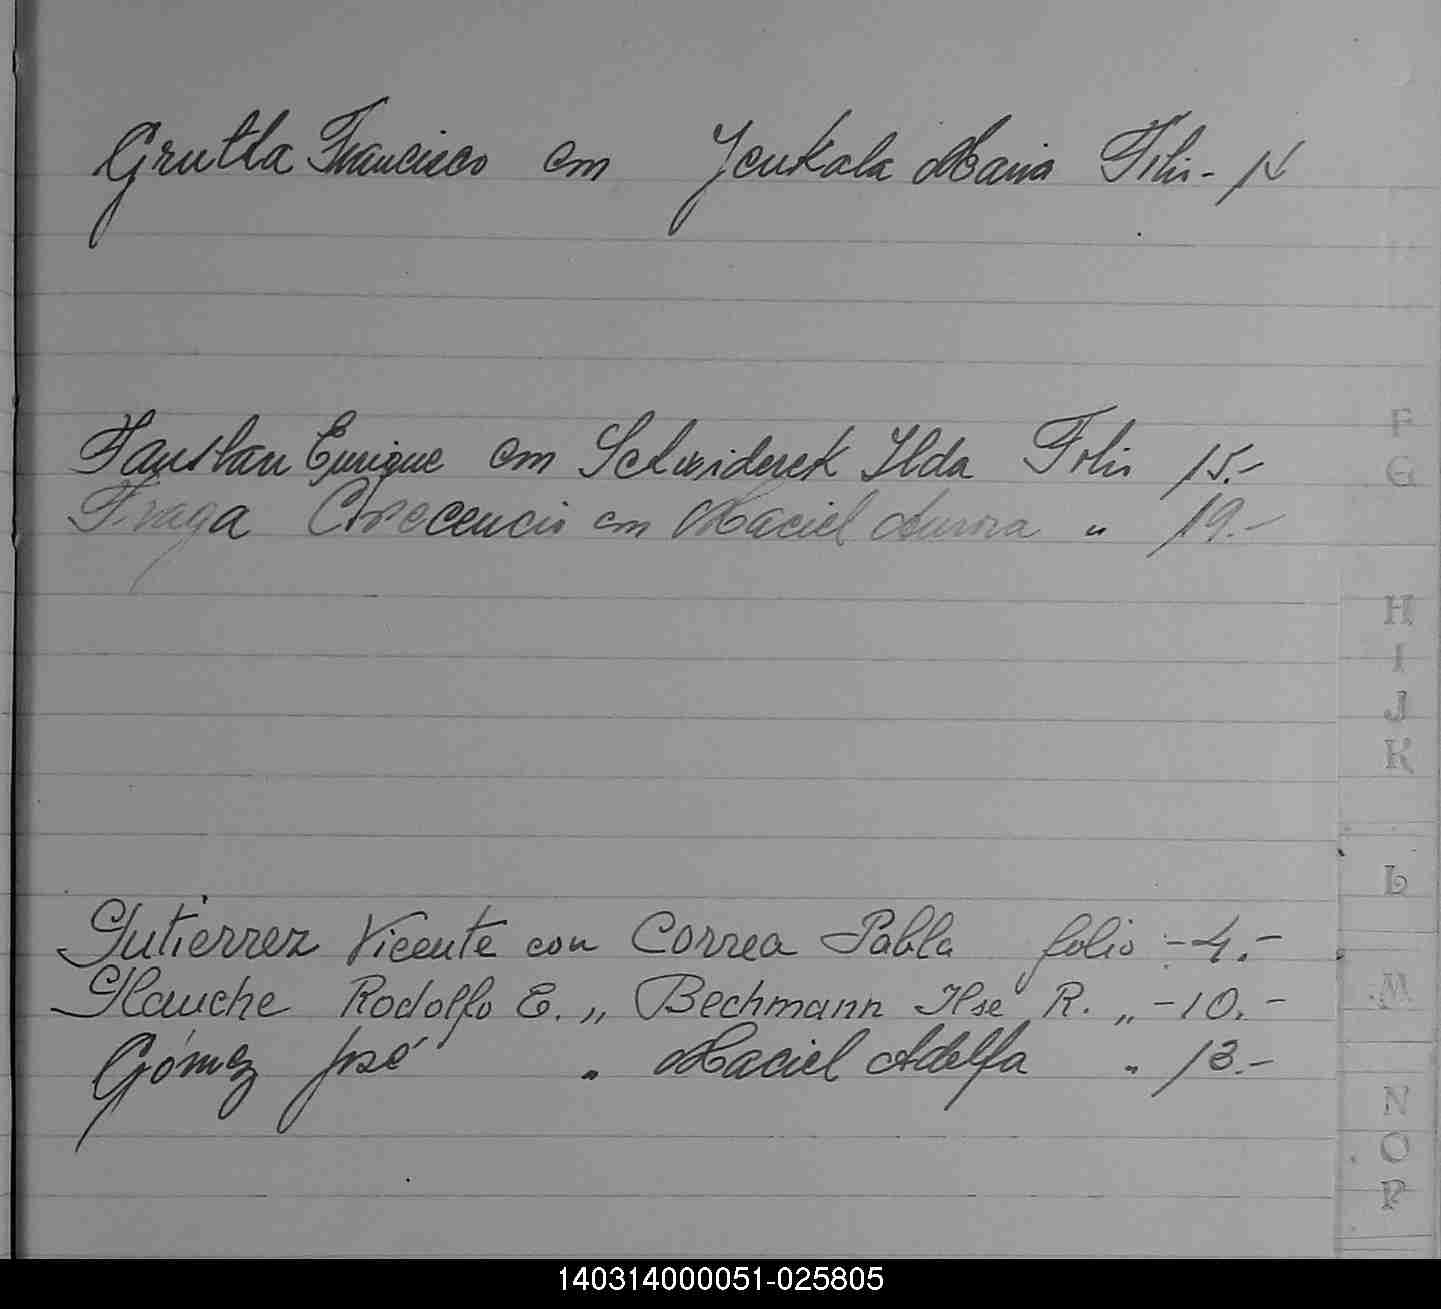 Grutla Francisco con Jeukala Maria Folio -
Faustian Enrique con Schwiderek Ilda Folio 15.-
Fraga Crececencio con Maciel Aurora " 19.-
Gutierrez Vicente con Correa Pabla folio - 4.-
Glauche Rodolfo E. " Bechmann Ilse R. " - 10.-
Gómez José " Maciel Adelfa " 13.-
F
G
H
I
J
K
L
M
N
O
P
140314000051-025805